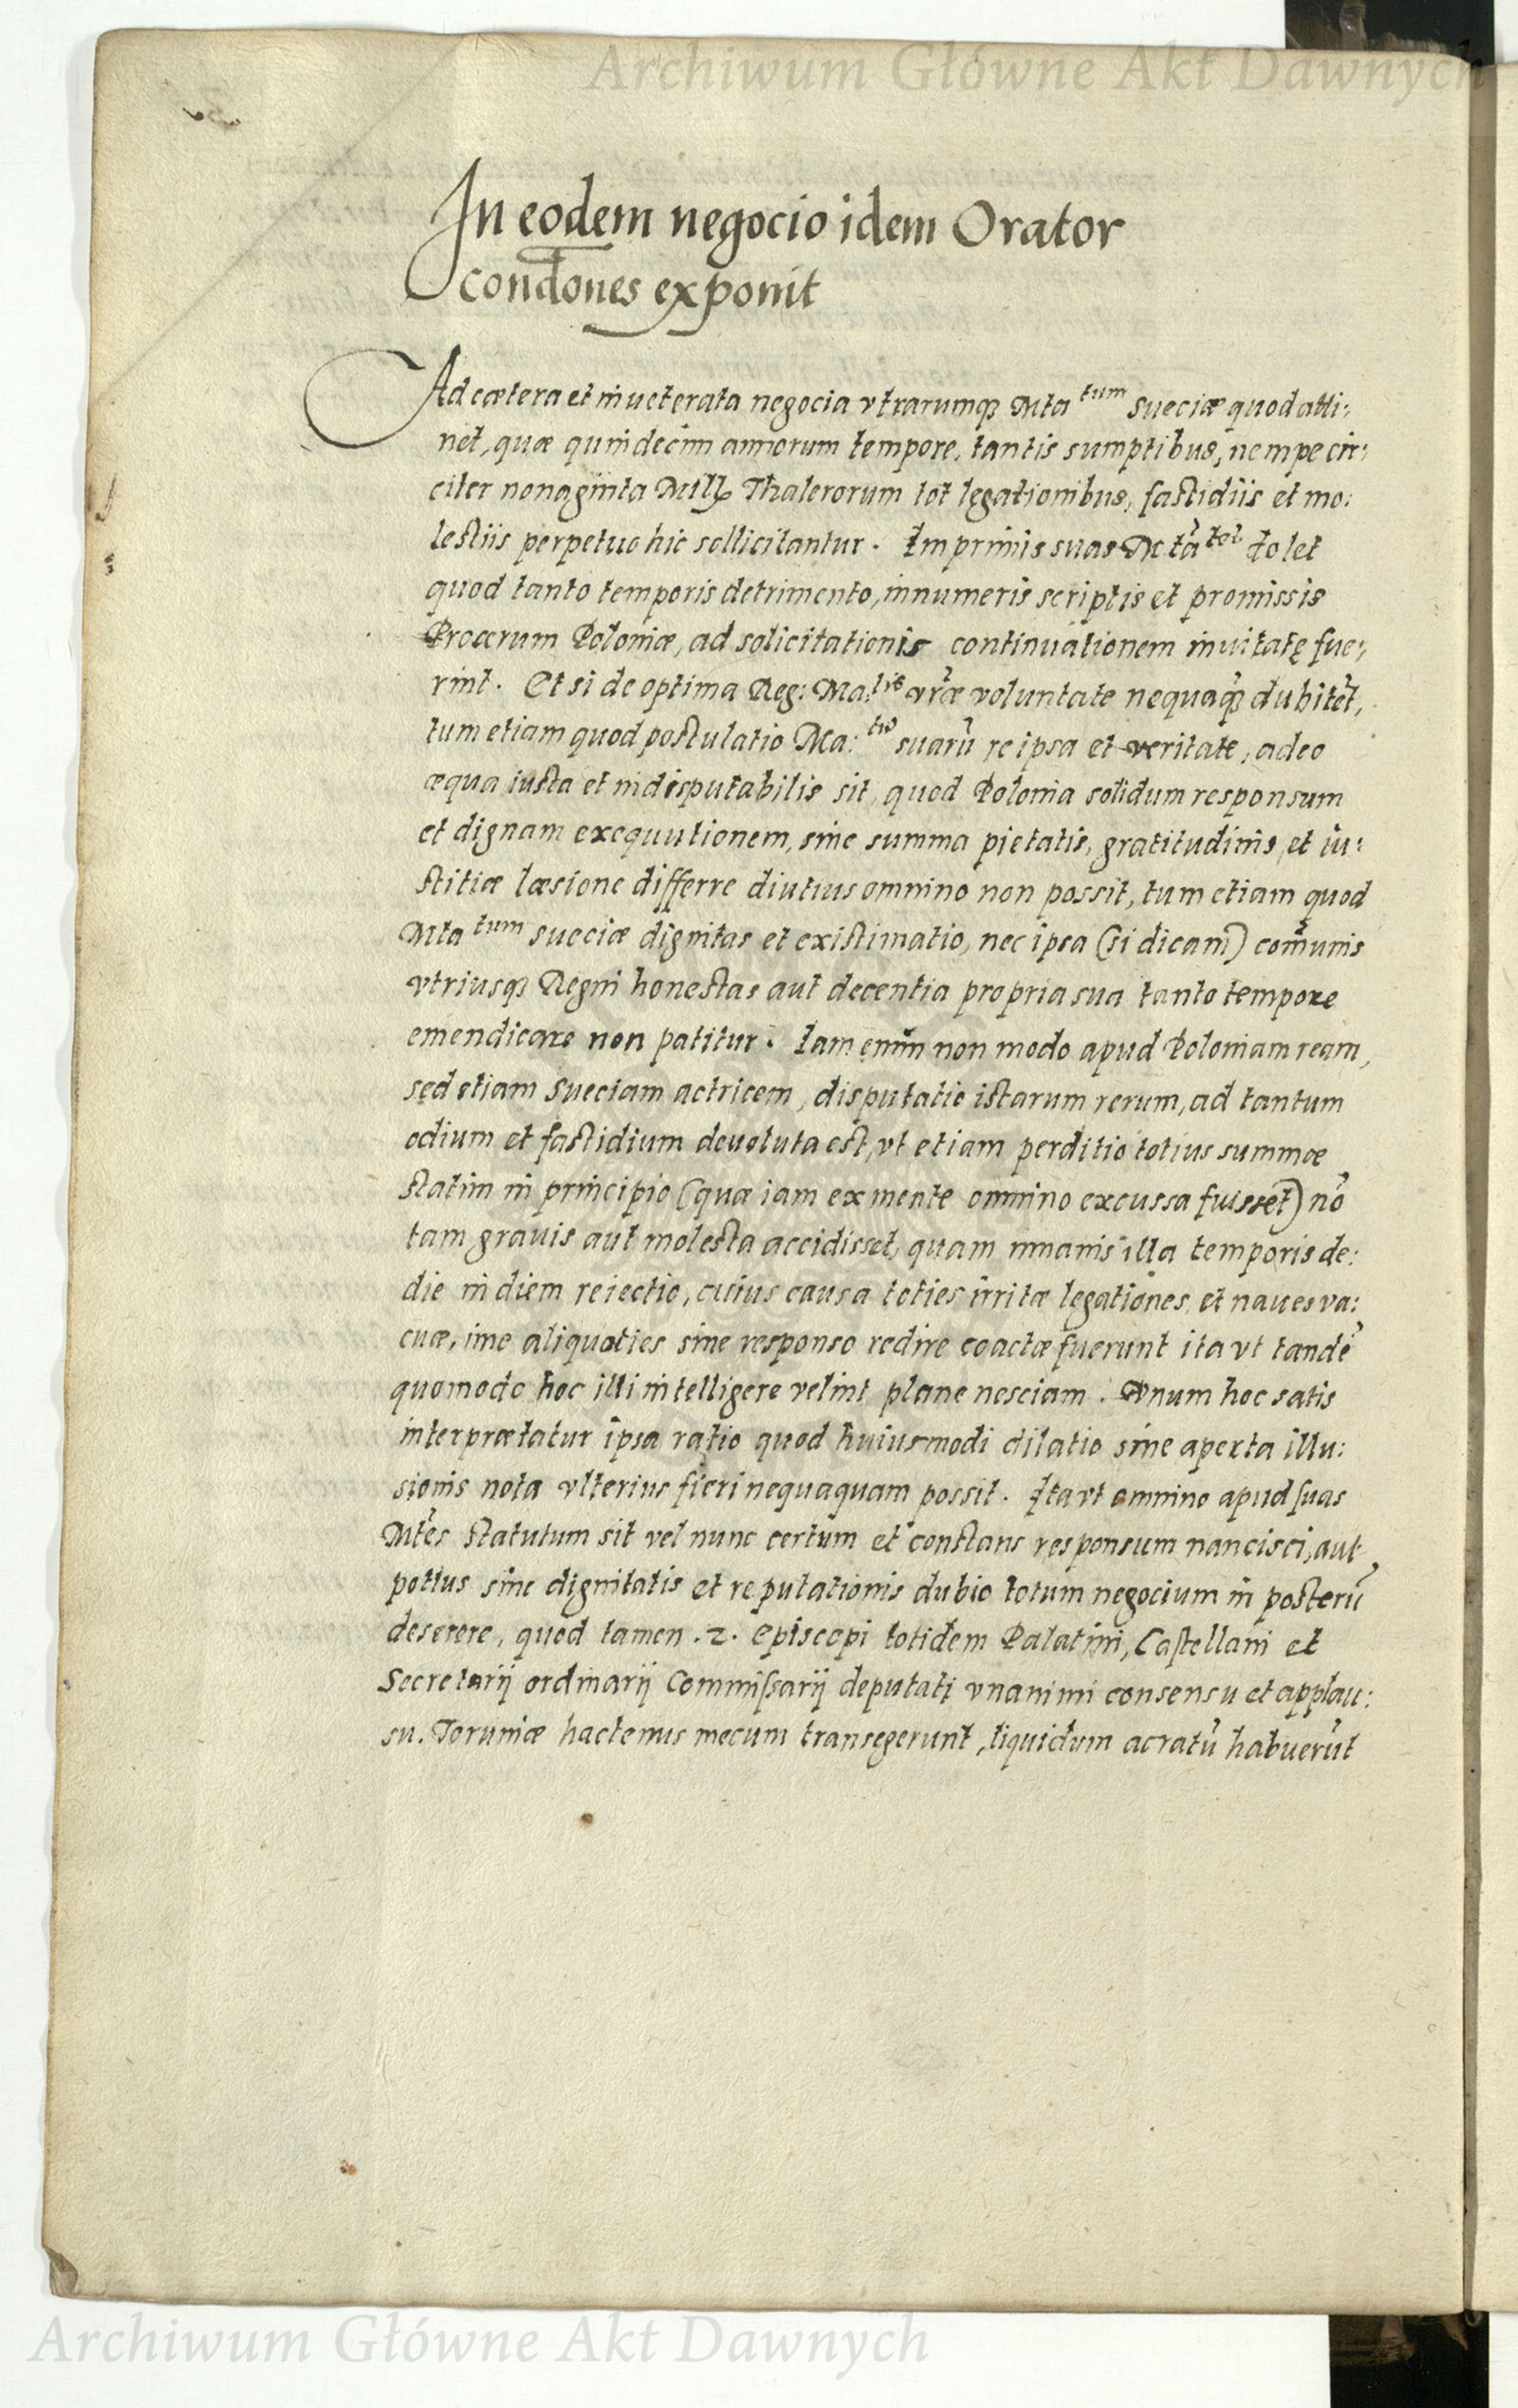 Archiwum Główne Akt Dawnych
In eodem negocio idem Orator
condōnes exponit
Ad cætera et inueterata negocia vtrarumqꝫ Mtatum Sueciæ quod atti:
net, quæ quindecim annorum tempore, tantis sumptibus, nempe cir:
citer nonaginta Mill Thalerorum tot legationibus, fastidiis et mo:
lestiis perpetuo hic sollicitantur. Imprimis suas Mtātes dolet
quod tanto temporis detrimento, innumeris scriptis et promissis
Procerum Poloniæ, ad solicitationis continuationem inuitatę fue:
rint. Et si de optima Reg: Ma:tis vr̃æ voluntate nequaqꝫ dubitet,
tum etiam quod postulatio Ma:tū suarū re ipsa et veritate, adeo
æqua iusta et indisputabilis sit, quod Polonia solidum responsum
et dignam exequutionem, sine summa pietatis, gratitudinis, et iu:
stitiæ læsione differre diutius omnino non possit, tum etiam quod
Mtatum Sueciæ dignitas et existimatio, nec ipsa (si dicam) com̄unis
vtriusqꝫ Regni honestas aut decentia propria sua tanto tempore
emendicare non patitur. Iam enim non modo apud Poloniam ream,
sed etiam Sueciam actricem, disputatio istarum rerum, ad tantum
odium et fastidium deuoluta est, vt etiam perditio totius summæ
statim in principio (quæ iam ex mente omnino excussa fuisset) nō
tam grauis aut molesta accidisset, quam inanis illa temporis de:
die in diem reiectio, cuius causa toties irritæ legationes, et naues va:
cuæ, imo aliquoties sine responso redire coactæ fuerunt ita vt tandē
quomodo hoc illi intelligere velint plane nesciam. Vnum hoc satis
interprætatur ipsa ratio quod huiusmodi dilatio sine aperta illu:
sionis nota vlterius fieri nequaquam possit. Ita vt omnino apud suas
Mtes statutum sit vel nunc certum et constans responsum nancisci, aut
potius sine dignitatis et reputationis dubio totum negocium in posterū
deserere, quod tamen .2. Episcopi totidem Palatini, Castellani et
Secretarij ordinarij Commissarij deputati vnanimi consensu et applau:
su. Toruniæ hactenus mecum transegerunt, liquidum ac ratū habuerūt
Archiwum Główne Akt Dawnych